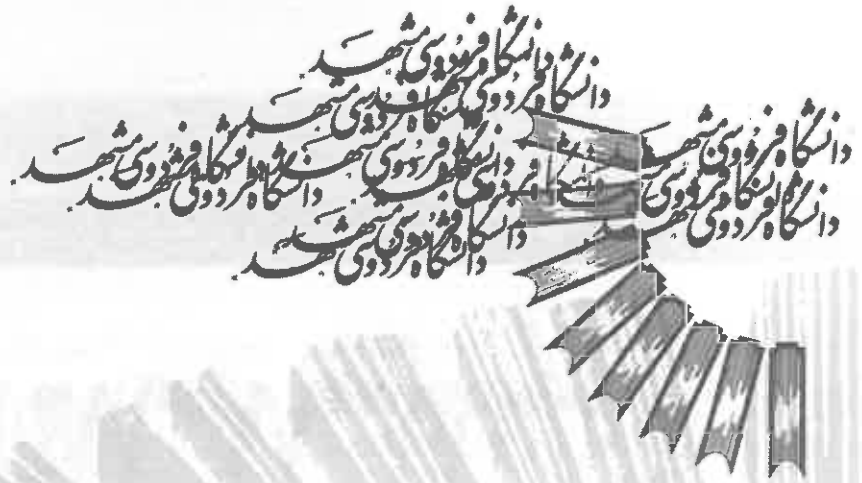 دانشگاه فردوسی مشهد
دانشگاه فردوسی مشهد
دانشگاه فردوسی مشهد
دانشگاه فردوسی مشهد
دانشگاه فردوسی مشهد
دانشگاه فردوسی مشهد
دانشگاه فردوسی مشهد
دانشگاه فردوسی مشهد
دانشگاه فردوسی مشهد